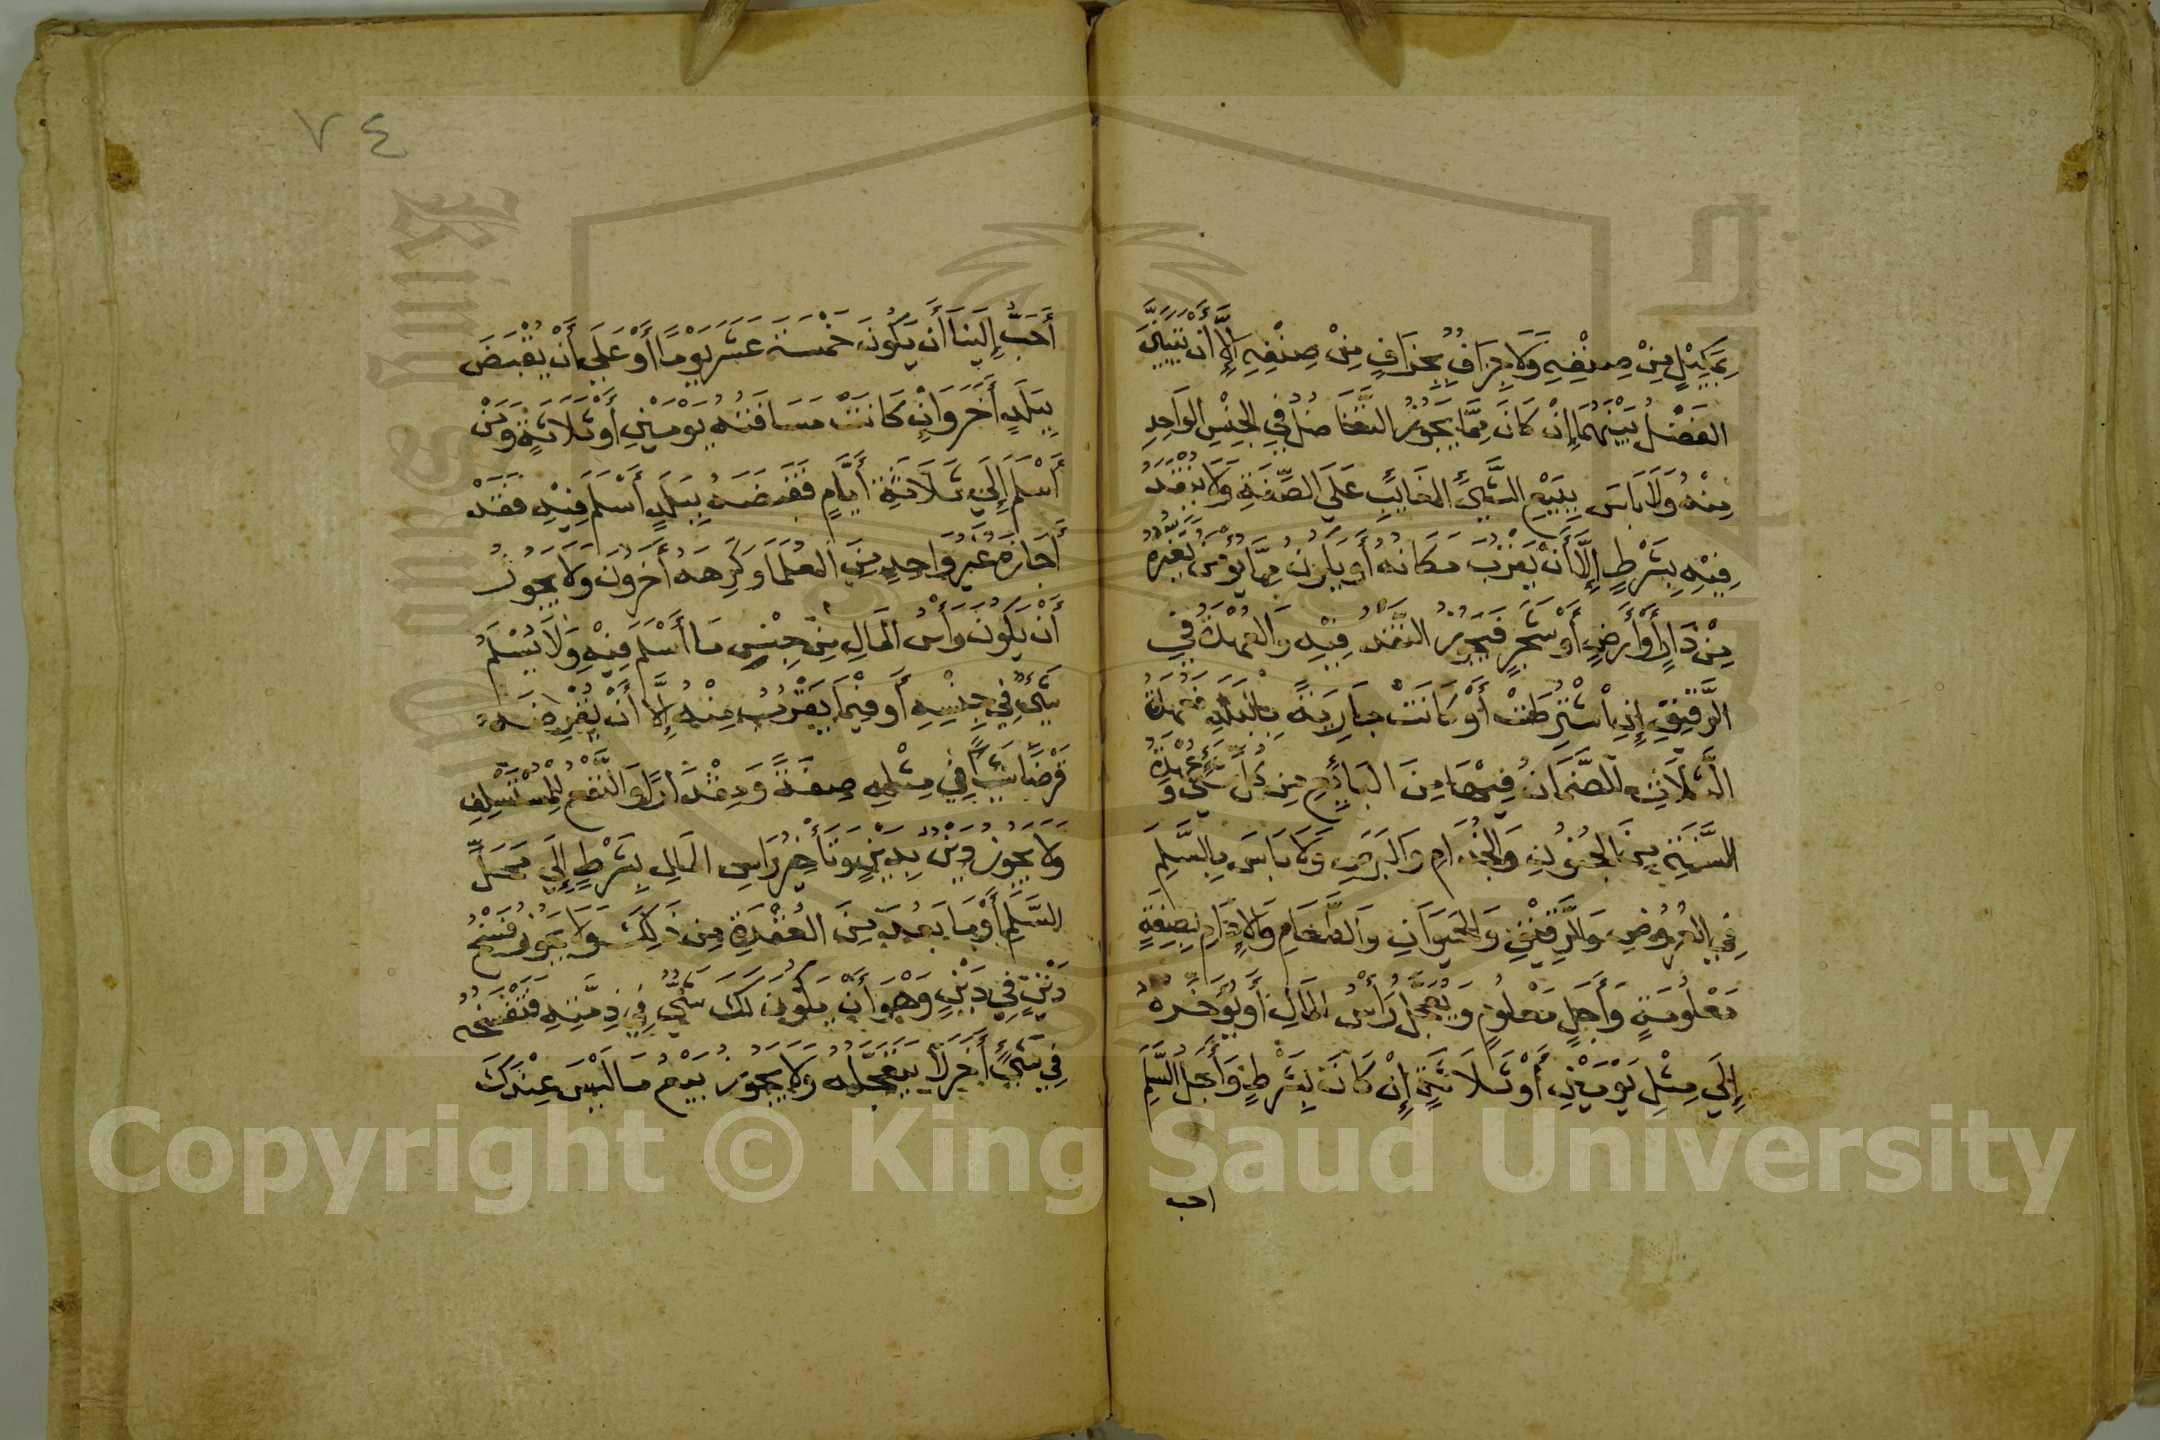 بِمَكِيْلٍ مِنْ صِنْفِهِ وَلَا جِزَافٌ بِجِزَافٍ مِنْ صِنْفِهِ إِلَّا أَنْ يَتَبَيَّنَ
الفَضْلُ بَيْنَهُمَا إِنْ كَانَ مِمَّا يَجُوزُ التَّفَاضُلُ فِي الجِنْسِ الوَاحِدِ
مِنْهُ وَلَا بَاسَ بِبَيْعِ الشَّيْءِ الغَايِبِ عَلَي الصِّفَةِ وَلَا يُنْقَدُ
فِيْهِ بِشَرْطٍ إِلَّا أَنْ يَقْرُبَ مَكَانُهُ أَوْ يَكُونَ مِمَّا يُؤْمَنُ تَغَيُّرُهُ
مِنْ دَارٍ أَوْ أَرْضٍ أَوْ شَجَرٍ فَيَجُوزُ النَّقْدُ فِيْهِ وَالعُهْدَةُ فِي
الرَّقِيْقِ إِنِ اشْتُرِطَتْ أَوْ كَانَتْ جَارِيَةً بِالبَلَدِ فَعُهْدَةُ
الثَّلَاثِ الضَّمَانُ فِيْهَا مِنَ البَايِعِ مِنْ كُلِّ شَيْءٍ وَعُهْدَةُ
السَّنَةِ مِنَ الجُنُونِ وَالجُذَامِ وَالبَرَصِ وَلَا بَاسَ بِالسَّلَمِ
فِي العُرُوضِ وَالرَّقِيْقِ وَالحَيَوَانِ وَالطَّعَامِ وَالإِدَامِ بِصِفَةٍ
مَعْلُومَةٍ وَأَجَلٍ مَعْلُومٍ وَيُعَجَّلُ رَأْسُ المَالِ أَوْ يُؤَخِّرُهُ
إِلَي مِثْلِ يَوْمَيْنِ أَوْ ثَلَاثَةٍ إِنْ كَانَ بِشَرْطٍ وَأَجَلُ السَّلَمِ
احب
٧٤
أَحَبُّ إِلَيْنَا أَن يَكُونَ خَمْسَةَ عَشَرَ يَوْمًا أَوْ عَلَي أَنْ يُقْبَضَ
بِبَلَدٍ أَخَرَ وَإِنْ كَانَتْ مَسَافَتُهُ يَوْمَيْنِ أَوْ ثَلَاثَةً وَمَنْ
أَسْلَمَ إِلَي ثَلَاثَةِ أَيَّامٍ فَقَبَضَهُ بِبَلَدٍ أَسْلَمَ فِيْهِ فَقَدْ
أَجَازَهُ غَيْرُ وَاحِدٍ مِنَ العُلَمَا وَكَرِهَهُ أَخَرُونَ وَلَا يَجُوزُ
أَنْ يَكُونَ رَأْسُ المَالِ مِنْ جِنْسِ مَا أَسْلَمَ فِيْهِ وَلَا يُسْلَمُ
شَيْءٌ فِي جِنْسِهِ أَوْ فِيْمَا يَقْرُبُ مِنْهُ إِلَّا أَنْ يُقْرِضَهُ
قَرْضًا شَيْئًا فِي مِثْلِهِ صِفَةً وَمِقْدَارًا وَالنَّفْعُ لِلْمُتَسَلِّفِ
وَلَا يَجُوزُ دَيْنٌ بِدَيْنٍ وَتَأْخِيْرُ رَاسِ المَالِ بِشَرْطٍ إِلَي مَحَلِّ
السَّلَمِ أَوْ مَا بَعُدَ مِنَ العُقْدَةِ مِنْ ذَلِكَ وَلَا يَجُوزُ فَسْخُ
دَيْنٍ فِي دَيْنٍ وَهْوَ أَنْ يَكُونَ لَكَ شَيْءٌ فِي ذِمَّتِهِ فَتَفْسَخُهُ
فِي شَيْءٍ أَخَرَ لَا تَتَعَجَّلُهُ وَلَا يَجُوزُ بَيْعُ مَا لَيْسَ عِنْدَكَ
Copyright © King Saud University